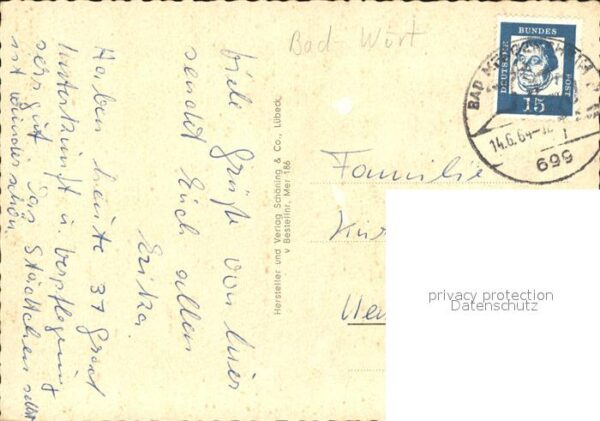 Bad-Wört
Viele Grüße von hier
sendet Euch allen
Erika.
Haben heute 37 Grad
Unterkunft u. Verpflegung
sehr gut. Das Städtchen selbst
ist wunderschön.
Hersteller und Verlag Schöning & Co., Lübeck
v Bestellnr. Mer 186
DEUTSCHE
BUNDES
POST
15
BAD
14.6.64
699
Familie
privacy protection
Datenschutz